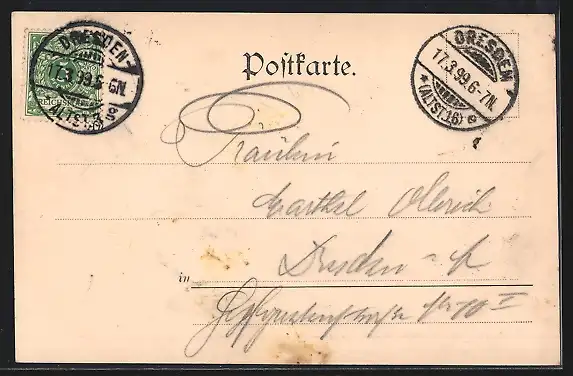 DRESDEN
17.3.99.6-7N.
ALTST.16
Postkarte.
DRESDEN
17.3.99.6-7N.
* (ALTST.16) e
Fräulein
Marthel Olbrich
in Dresden - A